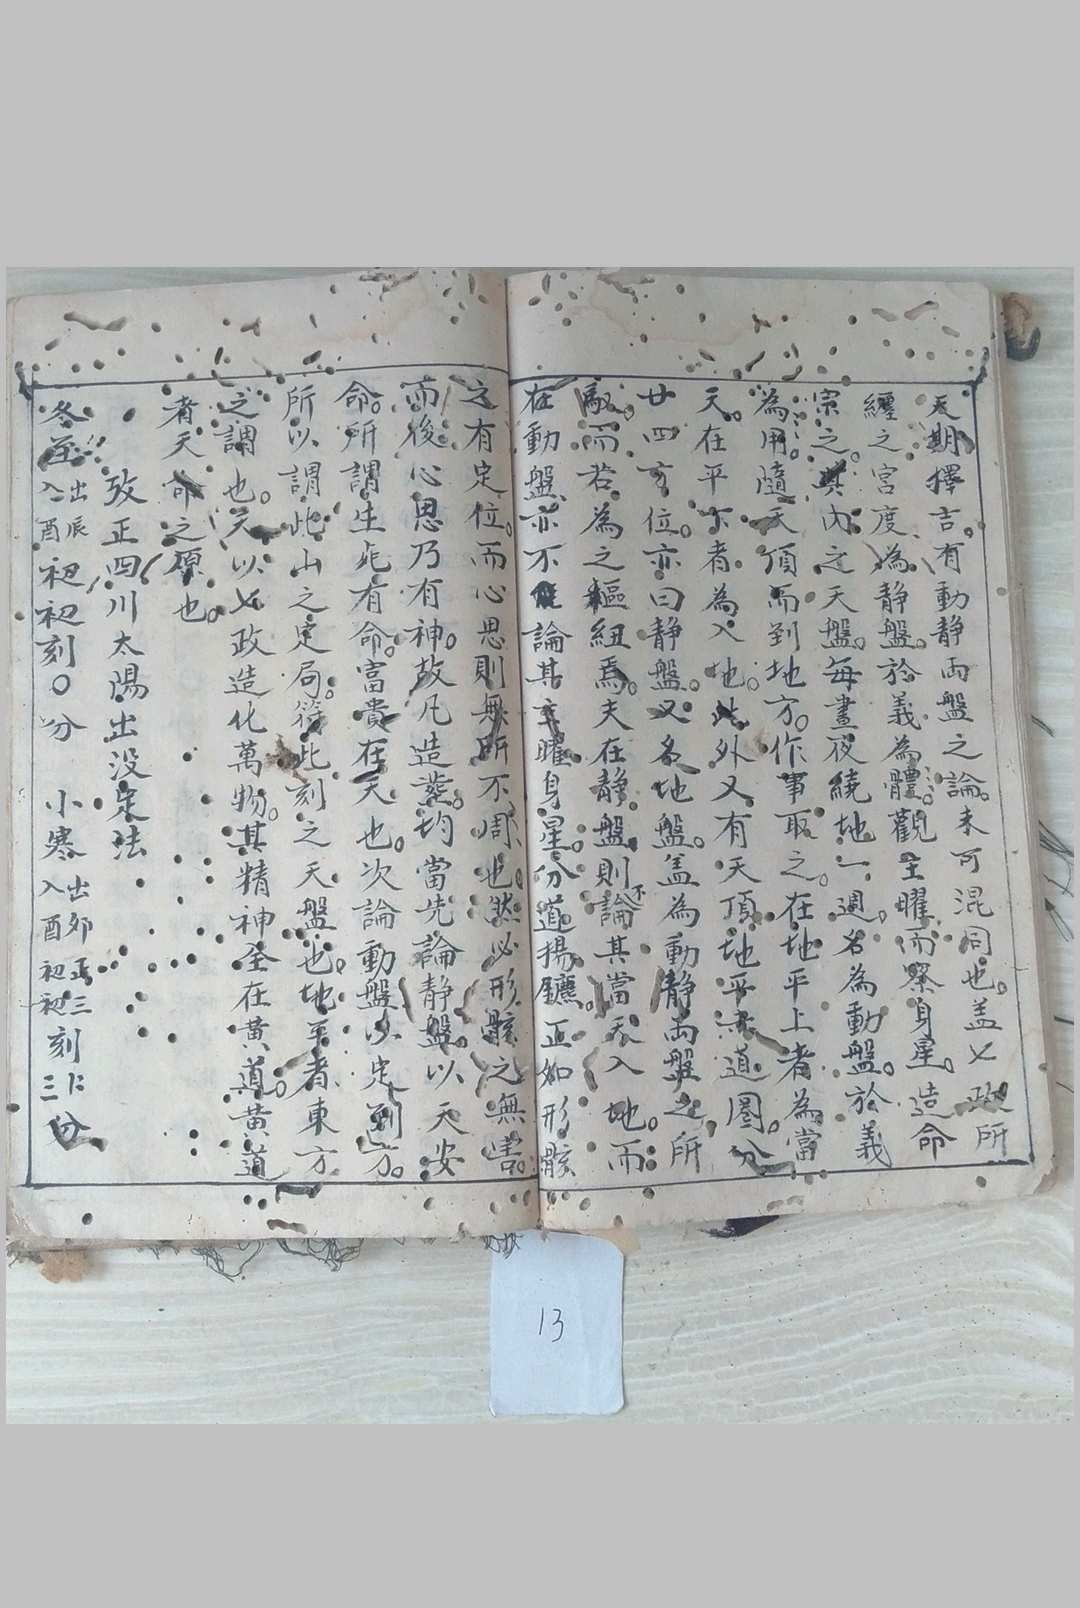 天期擇吉。有動靜兩盤之論。未可混同也。盖七政所
纏之宮度為靜盤。於義為體。觀主曜而察身星。造命
宗之。其內之天盤。每晝夜繞地一週。名為動盤。於義
為用。隨天頂而到地方。作事取之。在地平上者為當
天。在平下者為入地。此外又有天頂地平赤道圈。分
廿四方位。亦曰靜盤。又名地盤。盖為動靜兩盤之所
馭。而若為之樞紐焉。夫在靜盤。則不論其當天入地。而
在動盤亦不論其主曜身星。分道揚鑣。正如形骸
之有定位。而心思則無所不周也。然必形骸之無害。
而後心思乃有神。故凡造塟。均當先論靜盤。以天安
命。所謂生死有命。富貴在天也。次論動盤。以定到方。
所以謂此山之定局。符此刻之天盤也。地平者東方
之謂也。天以七政造化萬物。其精神全在黃道。黃道
者天命之原也。
攷正四川太陽出没定法
冬至 出辰入酉 初初刻〇分 小寒 出卯入酉 正三初初 刻 分
13